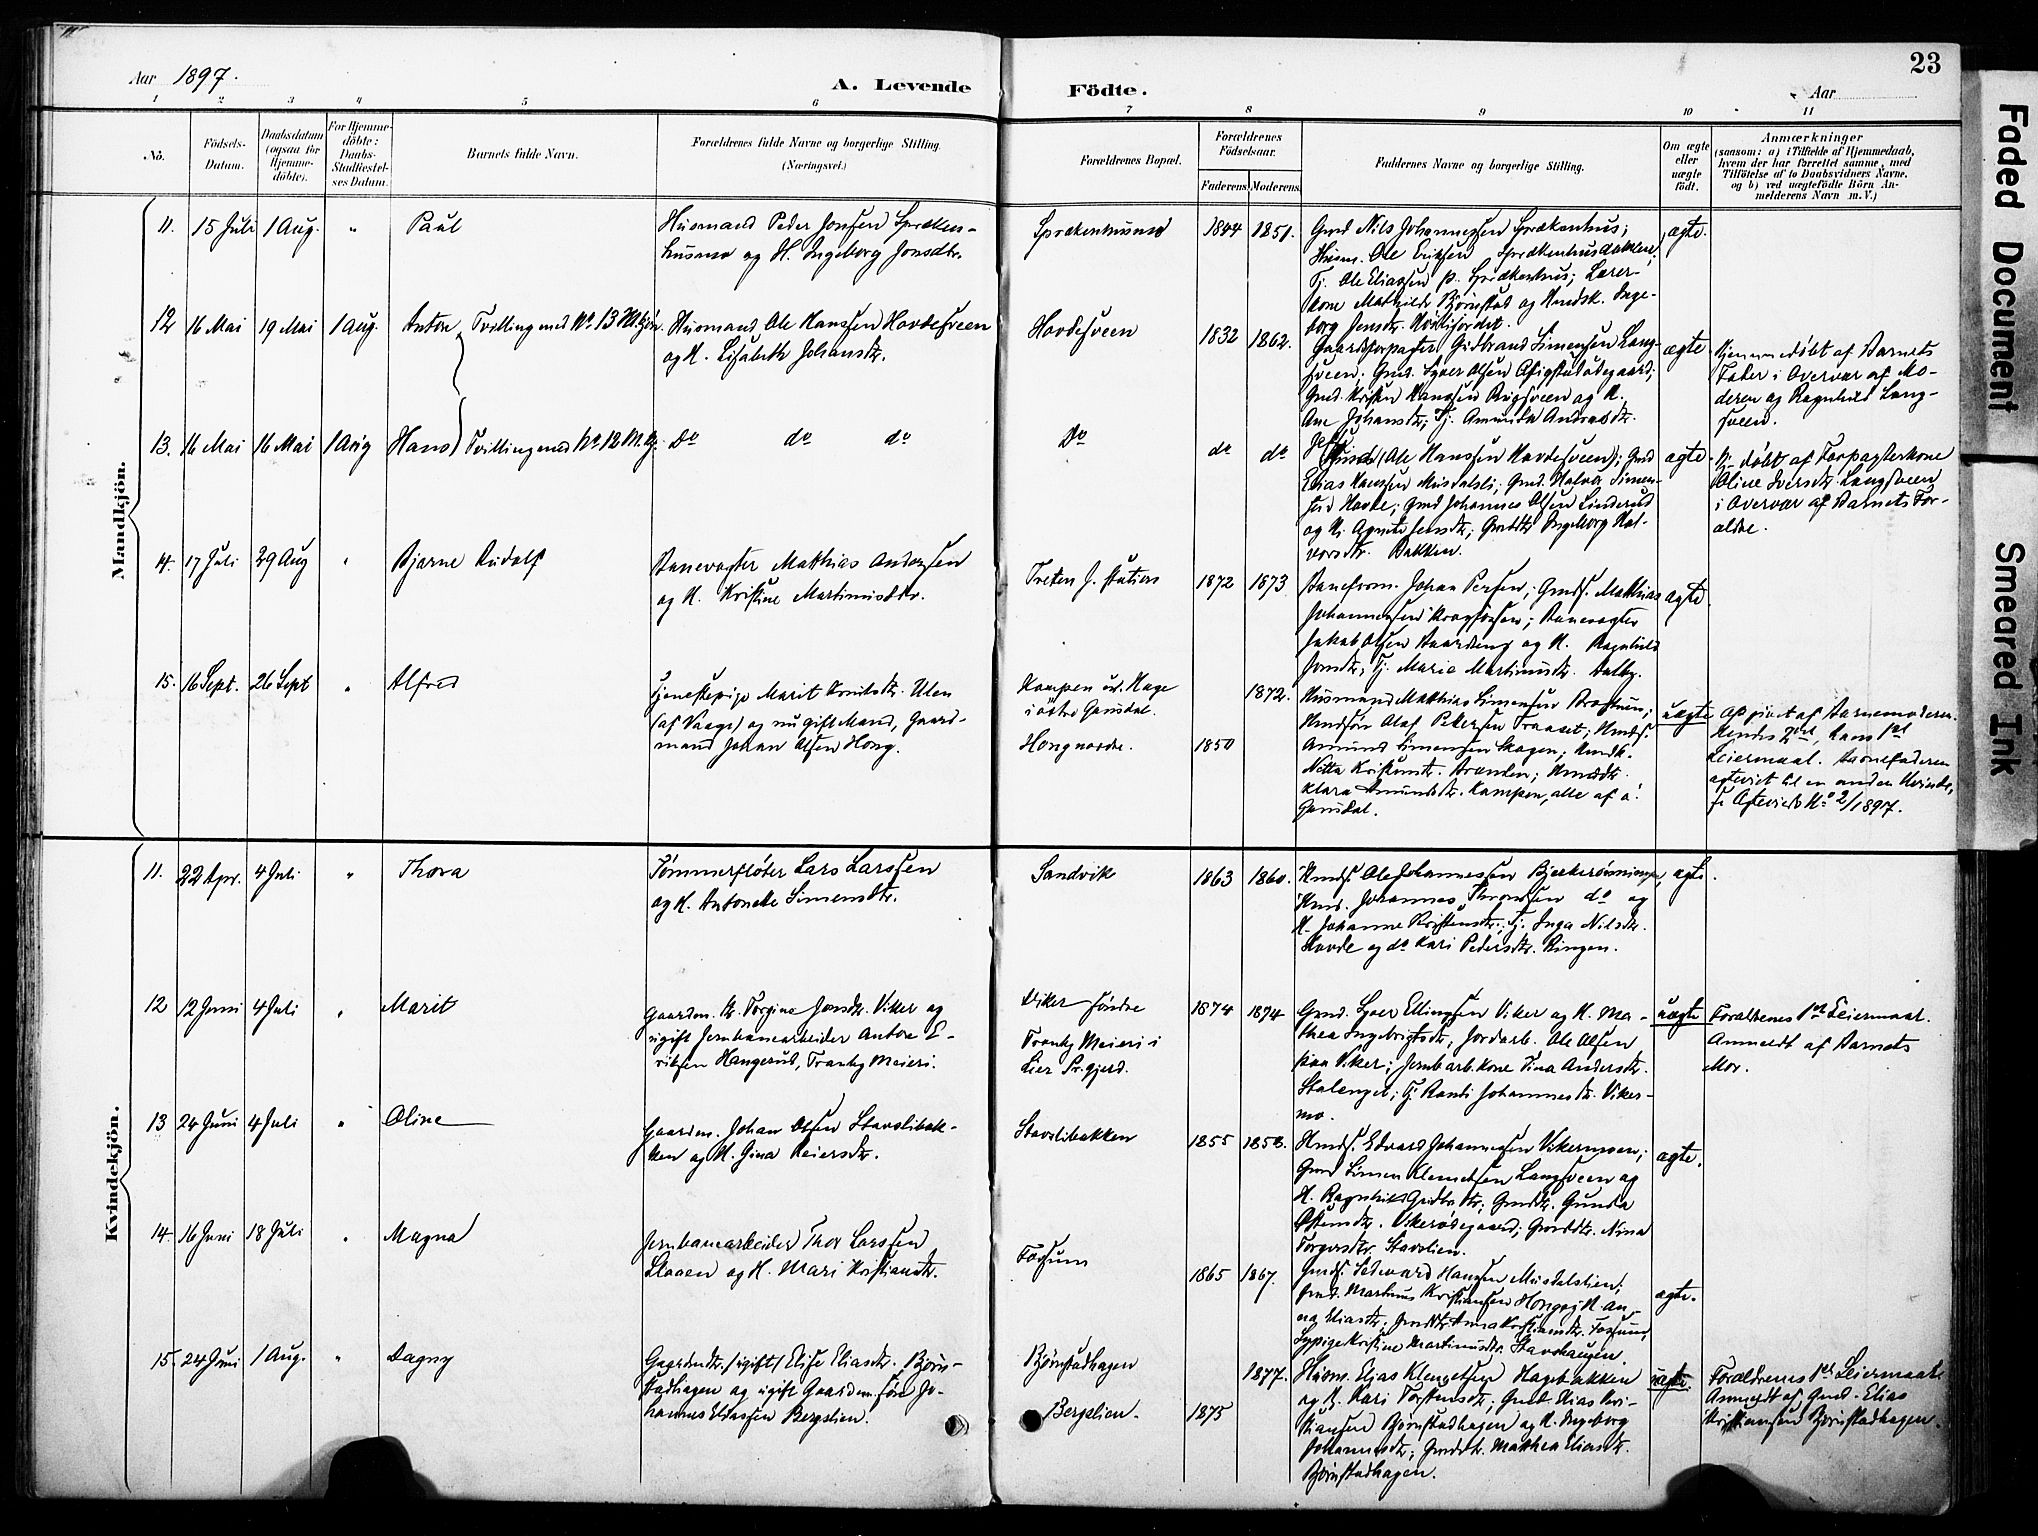 23
Aar 1897.
A. Levende Födte.
Aar
1 2 3 4 5 6 7 8 9 10 11
No.
Födsels-
Datum.
Daabsdatum
(ogsaa for
Hjemme-
döbte).
For Hjemme-
döbte:
Daabs-
Stadfæstel-
ses Datum.
Barnets fulde Navn.
Forældrenes fulde Navne og borgerlige Stilling.
(Næringsvei.)
Forældrenes Bopæl.
Forældrenes
Födselsaar.
Faderens. Moderens.
Faddernes Navne og borgerlige Stilling.
Om ægte
eller
uægte
födt.
Anmærkninger
(saasom: a) i Tilfælde af Hjemmedaab,
hvem der har forrettet samme, med
Tilföielse af to Daabsvidners Navne.
og b) ved uægtefödte Börn An-
melderens Navn m. V.)
Mandkjön.
11. 15 Juli 1 Aug. " Paul
Husmand Peder Jonsen Sprækenhus-
og K. Ingeborg Jonsdtr.
1844 1851.
Gmd Nils Johannessen Sprækenhus;
Husm. Ole Eriksen
Tj. Ole Eliassen p. Sprækenhus; Lærer-
kone Mathilde Bjørnstad og
ægte.
12 16 Mai 19 Mai 1 Aug. Anton Tvilling med No 13 M.kjøn.
Husmand Ole Hanssen Hovdesveen
og K. Lisabeth Johansdtr.
Hovdesveen
1832 1862.
Gaardforpagter Gudbrand Simensen Lang-
sveen. Gmd. Syver Olsen
ægte
Hjemmedøbt af Barnets
Fader i Overvær af Mo-
deren og Ragnhild Lang-
sveen.
13. 16 Mai 16 Mai 1 Aug Hans Tvilling med No 12 M.kj.
Do do do
Do
do do
(Ole Hanssen Hovdesveen); Gmd
Elias Hanssen Musdalsli; Gmd. Halvor Simen-
sen Hovde; Gmd Johannes Olsen Linderud
og K. Agnete Jensdtr; Gmdtr Ingeborg Hal-
vorsdtr. Bakken.
ægte.
Hj. døbt af Forpagterkone
Oline Iversdtr. Langsveen
i Overvær af Barnets For-
ældre.
14. 17 Juli 29 Aug " Bjarne Rudolf
Banevogter Matthias Andersen
og K. Kristine Martinusdtr.
Treten J. station
1872 1873
Baneform. Johan Persen; Gmds. Matthias
Johannessen Kragfossen; Banevogter
Jakob Olsen og K. Ragnhild
Jonsdtr; Tj. Marie Martinusdtr.
ægte.
15. 16 Sept. 26 Sept " Alfred
Tjenestepige Marit
(af Vaage) og nu gift Mand, Gaard-
mand Johan Olsen Hong.
Kampen
i østre Gausdal.
Hong nordre.
1850 1872.
Husmand Matthias Simensen
Olaf Petersen
Amund Simensen Skogen;
Klara Amundsdtr. Kampen, alle af ø.
Gausdal.
uægte
Opgivet af Barnemoderen.
Hendes 2det, hans 1ste
Leiermaal. Barnefaderen
ægteviet til en anden Kvinde,
f. Ægteviede No 2/1897.
Kvindekjön.
11. 22 Apr. 4 Juli " Thora
Tømmerfløter Lars Larssen
og K. Antonette Simensdtr.
Sandvik
1863 1860.
Hmds. Ole Johannessen Bjerkerønningen,
Hmd. Johannes Thronsen do og
K. Johanne Kristensdtr; Tj. Inga Nilsdtr.
Hovde og do Kari Pedersdtr. Ringen.
ægte.
12 12 Juni 4 Juli " Marit
Gaardm. D. Torgine Jonsdtr. Viker og
ugift Jernbanearbeider Anton E-
riksen Haugerud, Tranby Meieri.
Viker søndre
Tranby Meieri i
Lier Pr.gjeld.
1874 1874
Gmd. Syver Ellingsen Viker og K. Ma-
thea Ingebrigtsdtr, Jordarb. Ole Olsen
paa Viker; Jernb.arb.kone Tina Andersdtr.
Stalenget; Tj. Randi Johannesdtr. Viker-
mo.
uægte
Forældrenes 1ste Leiermaal.
Anmeldt af Barnets
Mor.
13 24 Juni 4 Juli " Oline
Gaardm. Johan Olsen Stavslibak-
ken og K. Gina Reiersdtr.
Stavslibakken
1855 1858.
Hmds. Edvard Johannessen Vikermoen;
Gmd Simen Klemetsen Langsveen og
K. Ragnhild Gudbr.dtr; Gmdtr. Gunda
Østensdtr. Vikerødegaard; Gmdtr. Nina
Torgersdtr. Stavslien.
ægte.
14. 16 Juni 18 Juli " Magna
Jernbanearbeider Thor Larssen
Staaen og K. Mari Kristiansdtr.
Fossum
1865 1867.
Gmds. Sedevard Hanssen Musdalslien;
Gmd. Martinus Kristiansen Hong og K. An-
na Eliasdtr; Gmdtr Anna Kristiansdtr. Fossum,
Sypige Kristine Martinusdtr. Stavshaugen.
ægte.
15. 24 Juni 1 Aug. " Dagny
Gaardmdtr. (ugift) Elise Eliasdtr. Bjørn-
stadhagen og ugift Gaardm.søn Jo-
hannes Eliassen Bergslien.
Bjørnstadhagen
Bergslien.
1875 1877.
Husm. Elias Klemetsen Hagebakken
og K. Kari Torstensdtr; Gmd Elias Kri-
stiansen Bjørnstadhagen og K. Ingeborg
Johannesdtr; Gmdtr. Mathea Eliasdtr.
Bjørnstadhagen.
uægte.
Forældrenes 1ste Leiermaal.
Anmeldt af Gmd. Elias
Kristiansen Bjørnstadhagen.
Faded Document
Smeared Ink